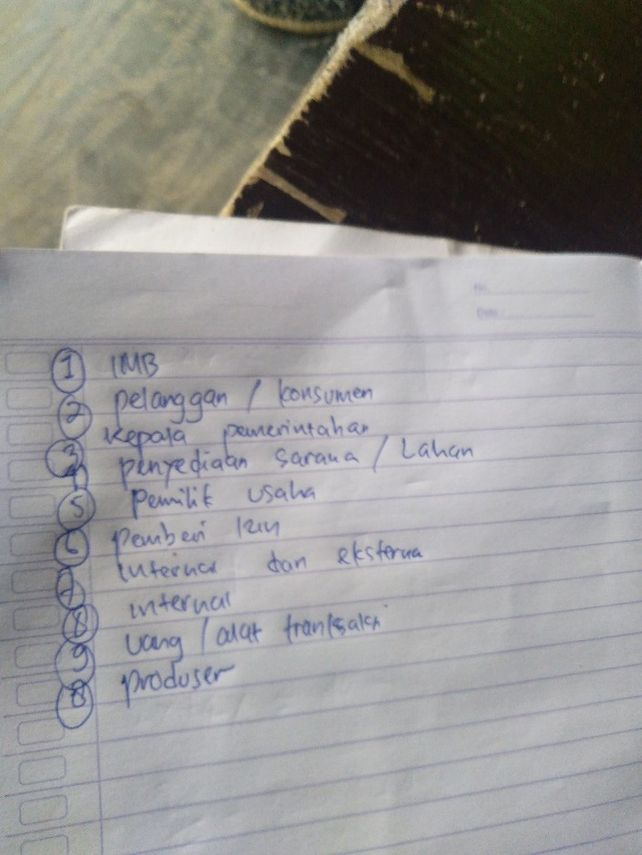 No.
Date
1 IMB
2 pelanggan / konsumen
3 kepala pemerintahan
4 penyediaan sarana / Lahan
5 pemilik usaha
6 pemberi izin
7 internal dan eksterna
8 internal
9 uang / alat transaksi
8 produser